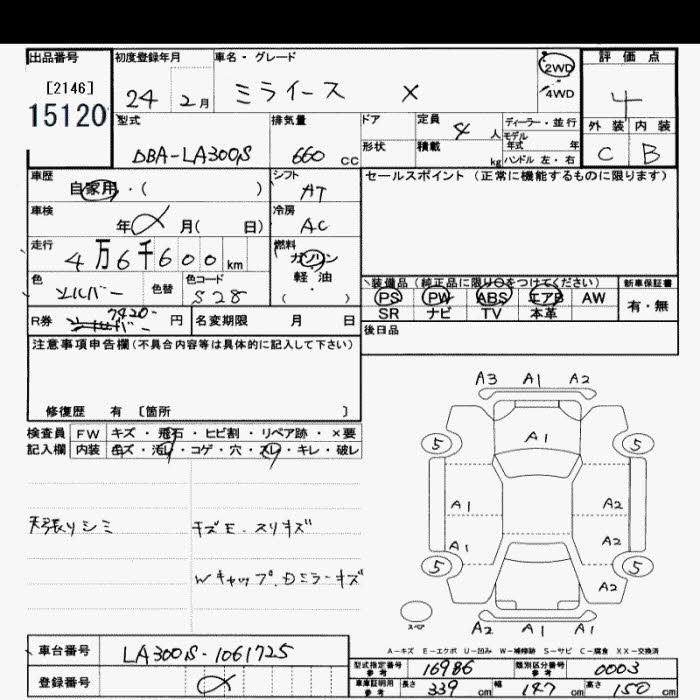 出品番号 初度登録年月 車名・グレード 2WD 評価点
[2146] 24 2月 ミライース X ・4WD 4
15120 型式 排気量 ドア 定員 4人 ディーラー・並行 外装 内装
DBA-LA300S 660cc 形状 積載 kg モデル年式 年 C B
ハンドル 左・右
車歴 シフト セールスポイント (正常に機能するものに限ります)
自家用・( ) AT
車検 冷房
年 月( 日) AC
走行 燃料
4万6千600km ガソリン
色 色替 色コード 軽・油 \装備品 (純正品に限り○をつけてください) 新車保証書
シルバー S28 ( ・ ) PS PW ABS エアB AW 有・無
R券 7420- 円 名変期限 月 日 SR ナビ TV 本革
後日品
注意事項申告欄(不具合内容等は具体的に記入して下さい)
修復歴 有 [箇所 ]
検査員 FW キズ・飛石・ヒビ割・リペア跡・×要
記入欄 内装 キズ・汚レ・コゲ・穴・スレ・キレ・破レ
A3 A1 A2
A1
5 5
A1 A2
A1 A2
5 5
A2
天張りシミ キズE.スリキズ
Wキャップ.Dミラーキズ
スペア
A2 A1 A1
A-キズ E-エクボ U-凹み W-補修跡 S-サビ C-腐食 XX-交換済
車台番号 LA300S-1061725
型式指定番号 参考 16986 類別区分番号 参考 0003
登録番号
車庫証明用 参考 長さ 339cm 幅 147cm 高さ 150cm